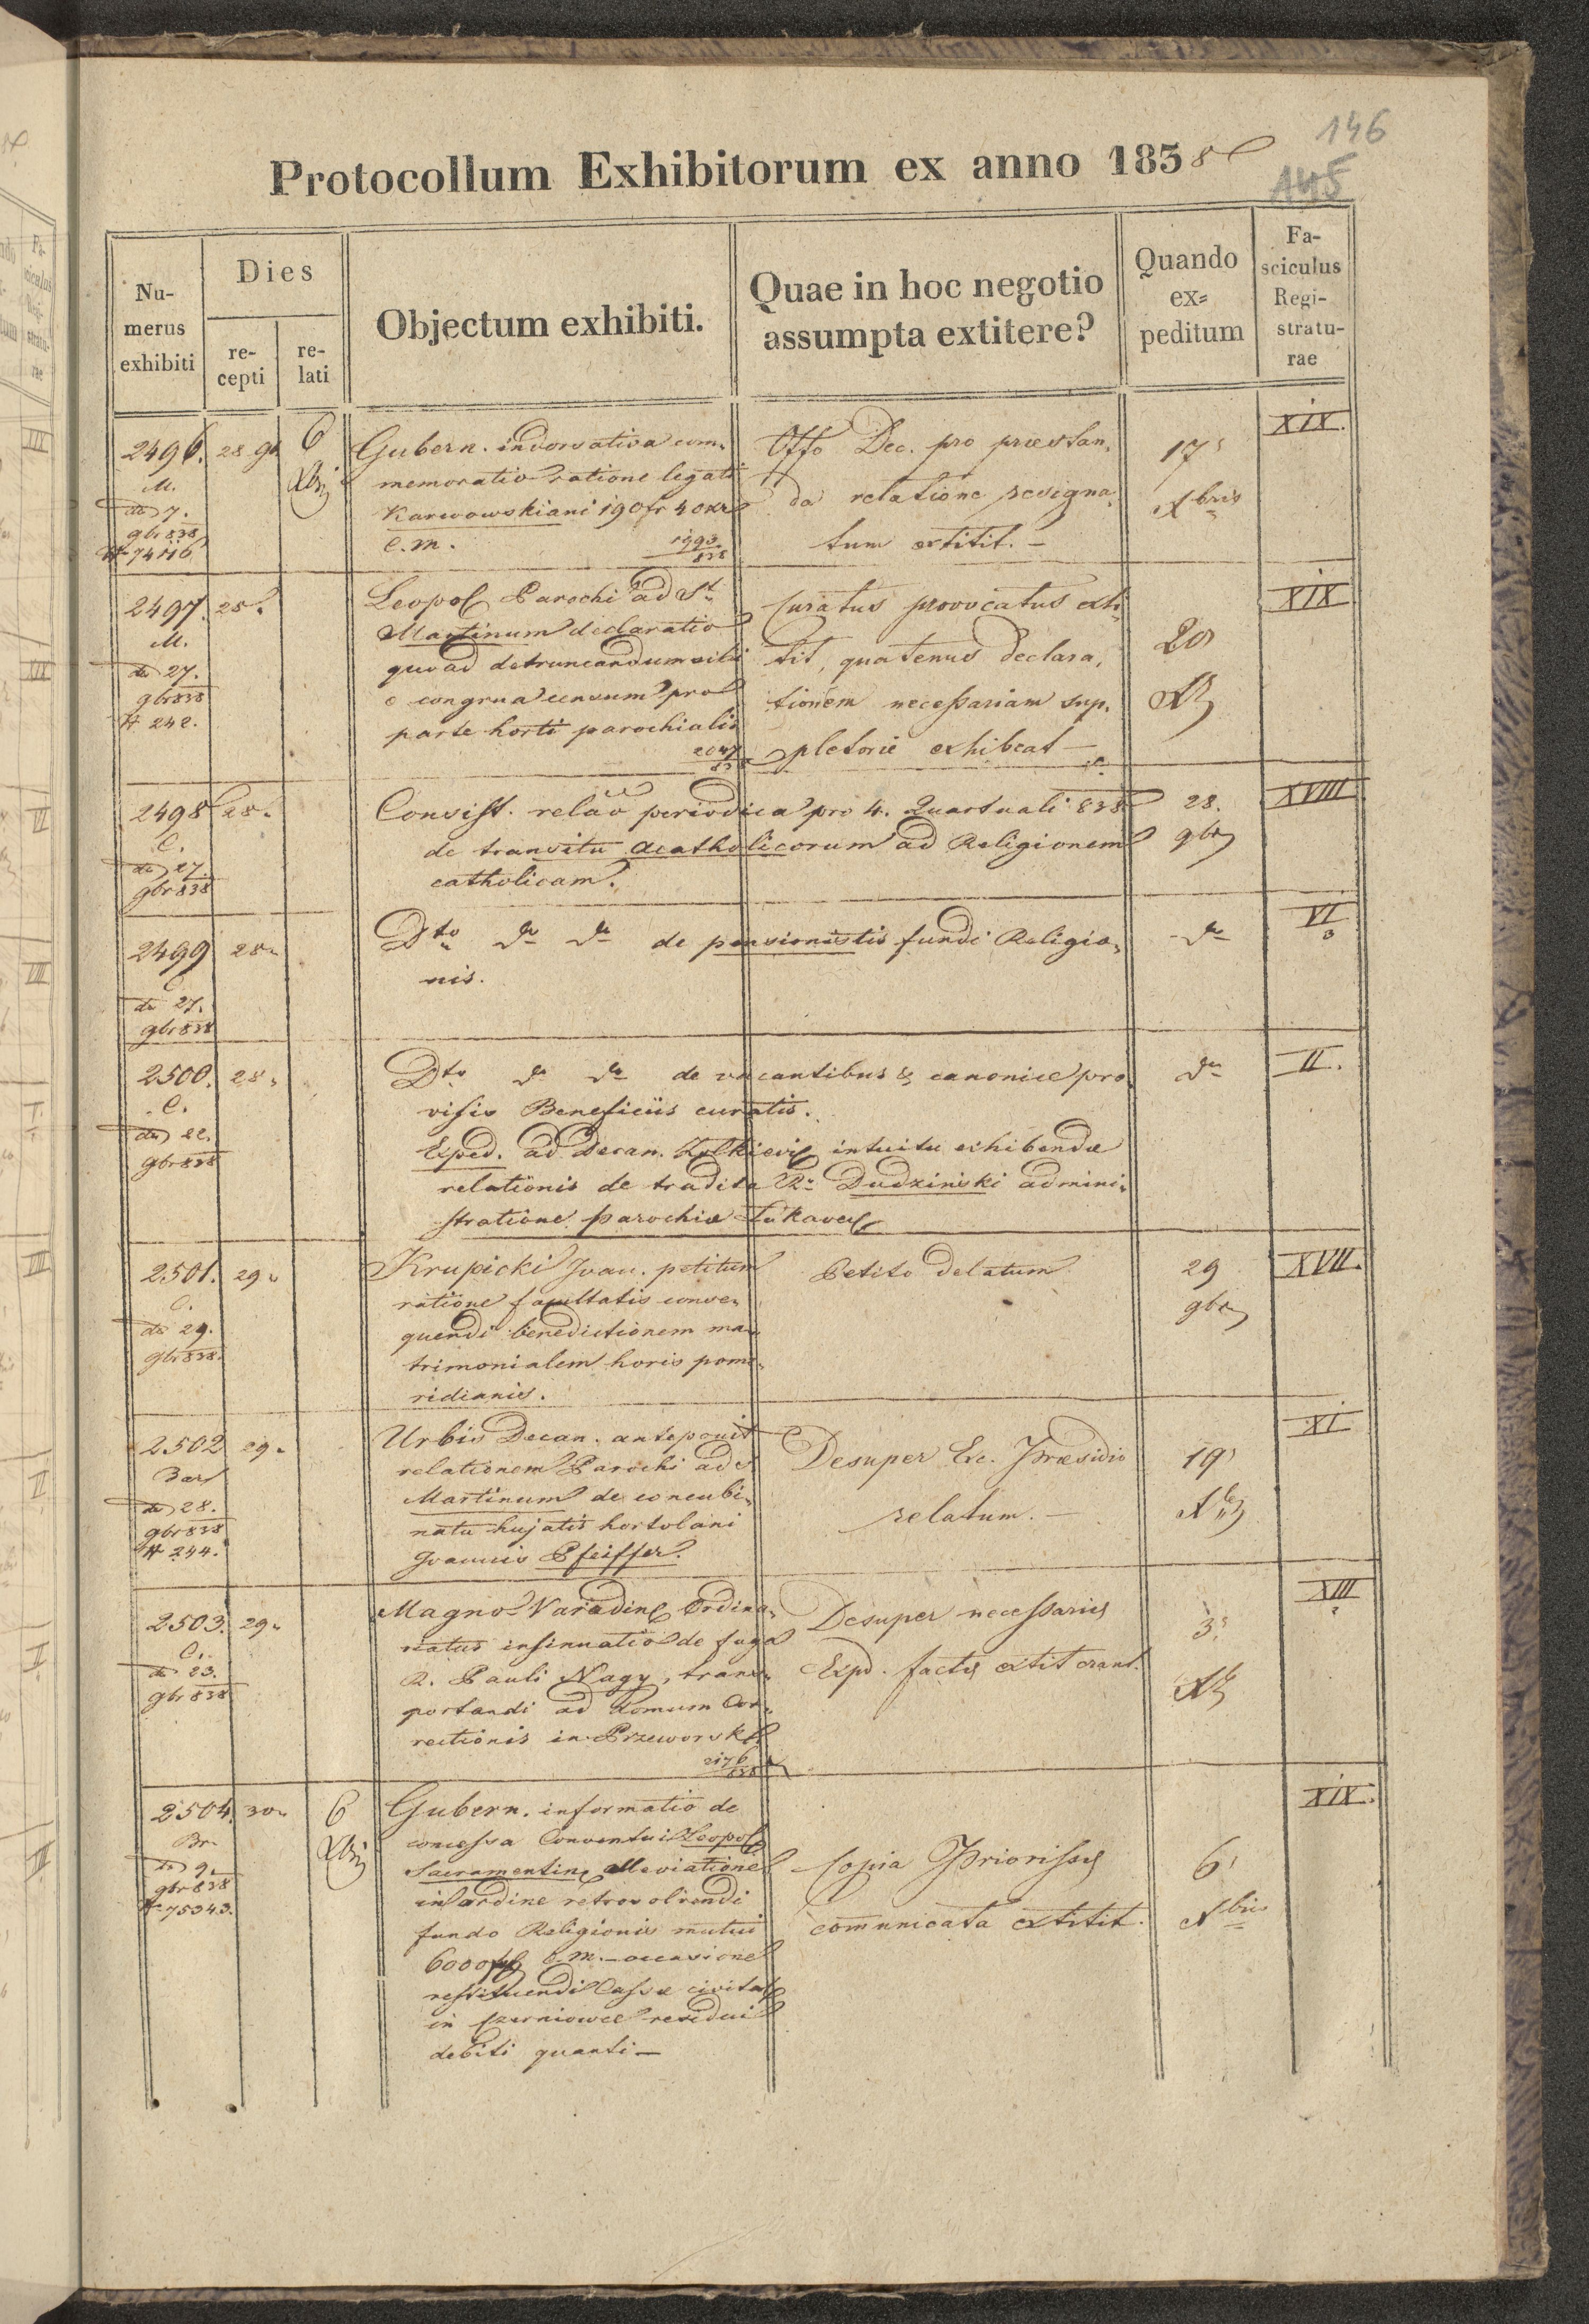 146
145
Protocollum Exhibitorum ex anno 1838
Numerus exhibiti
Dies
recepti
relati
Objectum exhibiti.
Quae in hoc negotio
assumpta extitere?
Quando
ex=
peditum
Fa-
sciculus
Regi-
stratu-
rae
2496.
M.
do 7.
9br 838
# 74116
28 9b
6
Xbris
Gubern. indorsativa com-
memoratio ratione legati
Karwowskiani 190 fr 40 xr
C. m. 1993/838
Offo Dec. pro præstan-
da relatione resigna-
tum extitit. —
17
Xbris
XIX.
2497.
M.
do 27.
9br 838
# 242.
28.
Leopol Parochi ad St
Martinum declaratio
quoad detruncandum sibi
e congrua censum pro
parte horti parochialis
2047/838
Curatus provocatus exti-
tit, quatenus declara-
tionem necessariam sup-
pletorie exhibeat —
20
Xb
XIX
2498
C.
do 27.
9br 838
28.
Consist. relão periodica pro 4. Quartuali 838
de transitu acatholicorum ad Religionem
catholicam.
28.
9br
XVIII
2499
C
do 27.
9br 838
28.
Dto do do de pensionistis fundi Religio-
nis.
do
VI
2500.
C.
do 22.
9br 838
28.
Dto do do de vacantibus & canonice pro-
visis Beneficiis curatis.
Exped. ad Decan. Zolkievi intuitu exhibendæ
relationis de tradita R. Dudzinski admini-
stratione parochiæ Tukavec
do
II.
2501.
C.
do 29.
9br 838.
29.
Krupicki Joan. petitum
ratione facultatis conse-
quendi benedictionem ma-
trimonialem horis pome-
ridianis.
Petito delatum
29
9br
XVII.
2502
Bar
do 28.
9br 838
# 244.
29.
Urbis Decan. anteponit
relationem Parochi ad S
Martinum de concubi-
natu hujatis hortolani
Joannis Pfeiffer.
Desuper Exc. Præsidio
relatum. —
19
Xb
XI
2503.
C.
do 23.
9br 838
29.
Magno-Varadin Ordina-
riatus insinuatio de fuga
R. Pauli Nagy, trans-
portandi ad domum Cor-
rectionis in Przeworsk
2176/838
Desuper necessariæ
Exp. factæ extiterant.
3.
Xb
XIII
2504.
Br.
do 9.
9br 838
# 75343.
30.
6
Xbris
Gubern. informatio de
concessa Conventui Leopol
Sacramentin alleviatione
in ordine retrosolvendi
fundo Religionis mutui
6000 fr C. M. — occasione
restituendi Cassæ civitat
in Czerniowce residui
debiti quanti —
Copia Priorissæ
communicata extitit.
6
Xbris
XIX.